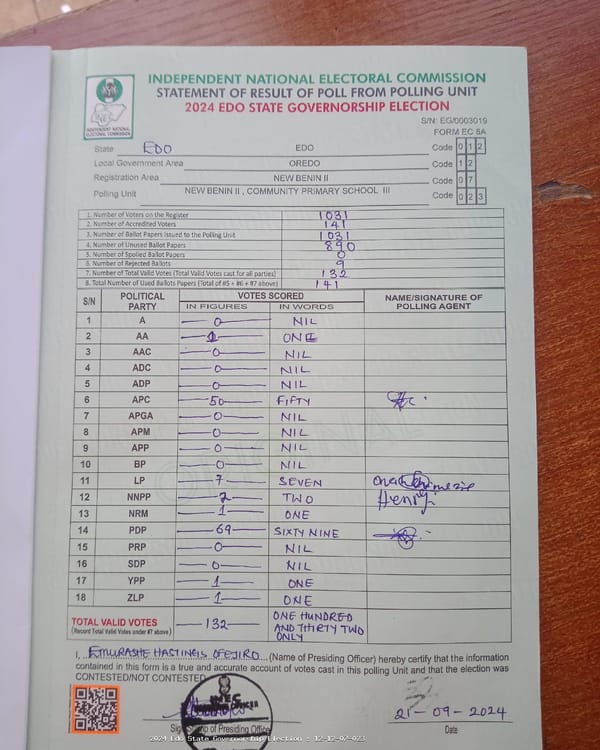 INDEPENDENT NATIONAL ELECTORAL COMMISSION
STATEMENT OF RESULT OF POLL FROM POLLING UNIT
2024 EDO STATE GOVERNORSHIP ELECTION
INEC
INDEPENDENT NATIONAL ELECTORAL COMMISSION
S/N: EG/0003019
FORM EC 8A
State EDO EDO Code 0 1 2
Local Government Area OREDO Code 1 2
Registration Area NEW BENIN II Code 0 7
Polling Unit NEW BENIN II , COMMUNITY PRIMARY SCHOOL III Code 0 2 3
1. Number of Voters on the Register 1031
2. Number of Accredited Voters 141
3. Number of Ballot Papers Issued to the Polling Unit 1031
4. Number of Unused Ballot Papers 890
5. Number of Spoiled Ballot Papers 0
6. Number of Rejected Ballots 9
7. Number of Total Valid Votes (Total Valid Votes cast for all parties) 132
8. Total Number of Used Ballots Papers (Total of #5 + #6 + #7 above) 141
S/N POLITICAL PARTY VOTES SCORED NAME/SIGNATURE OF POLLING AGENT
IN FIGURES IN WORDS
1 A 0 NIL
2 AA 1 ONE
3 AAC 0 NIL
4 ADC 0 NIL
5 ADP 0 NIL
6 APC 50 FIFTY
7 APGA 0 NIL
8 APM 0 NIL
9 APP 0 NIL
10 BP 0 NIL
11 LP 7 SEVEN
12 NNPP 2 TWO Henry
13 NRM 1 ONE
14 PDP 69 SIXTY NINE
15 PRP 0 NIL
16 SDP 0 NIL
17 YPP 1 ONE
18 ZLP 1 ONE
TOTAL VALID VOTES 132 ONE HUNDRED
(Record Total Valid Votes under #7 above) AND THIRTY TWO
ONLY
I, HASTINGIS OFEJIRO (Name of Presiding Officer) hereby certify that the information
contained in this form is a true and accurate account of votes cast in this polling Unit and that the election was
CONTESTED/NOT CONTESTED
INEC
Sig of Presiding Office
21-09-2024
Date
2024 Edo State Governorship Election : 12-12-07-023